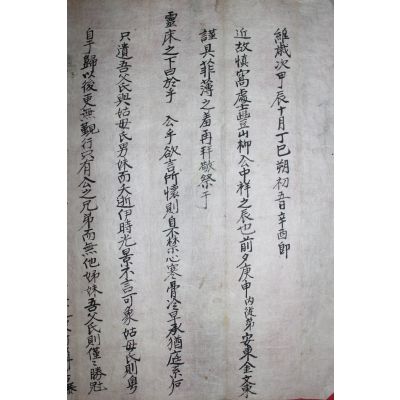 維歲次甲辰十月丁巳朔初五日辛酉卽
近故愼窩處士豊山柳公中祥之辰也前夕庚申內從弟安東金文東
謹具菲薄之羞再拜敬祭于
靈床之下曰於乎 公乎欲言所懷則自不禁心寒骨冷早承猶庭系后
只遺吾父氏與姑母氏男妹而夭逝伊時光景不言可象 姑母氏則粤
自于歸以後更無觀行只有公之兄弟而無他姊妹吾父氏則僅僅勝冠